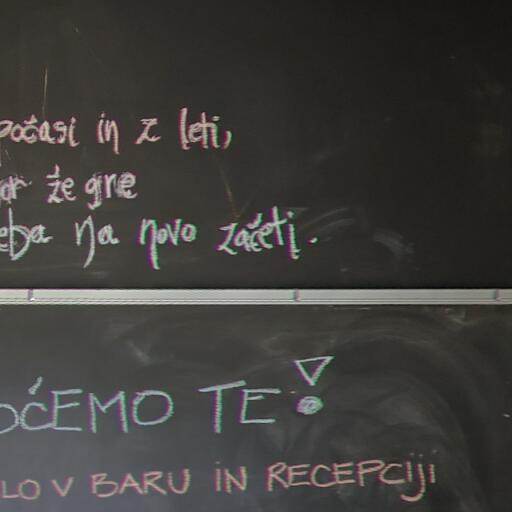 počasi in z leti,
že gre
na novo začeti.
OČEMO TE!
LO V BARU IN RECEPCIJI